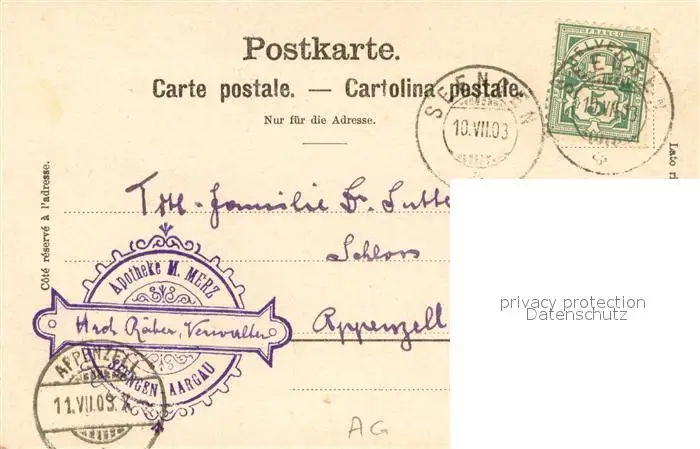 Postkarte.
Carte postale. — Cartolina postale.
Nur für die Adresse.
Côté réservé à l'adresse.
Lato ri
FRANCO
HELVETIA
SEENGEN
10.VII.03
SEENGEN
10.VII.03
Familie Dr. Sutte
Schloss
Appenzell
Apotheke M. MERZ
Verwalter
SEENGEN AARGAU
APPENZELL
11.VII.03.
AG
privacy protection
Datenschutz